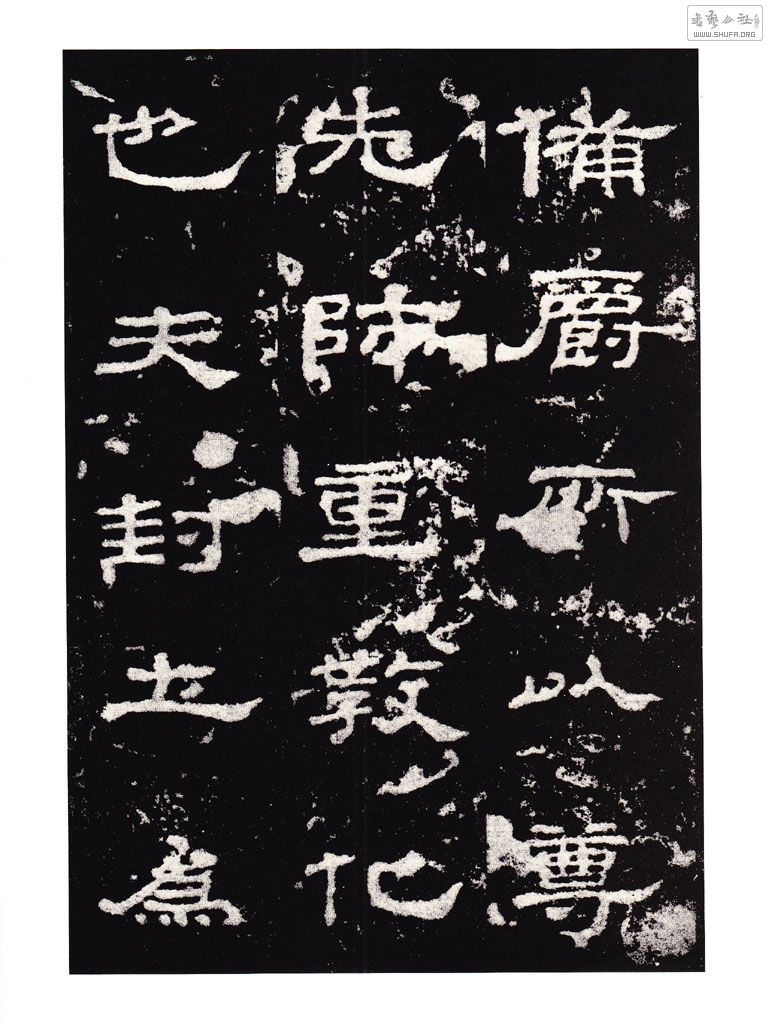 備爵所以尊
先師重教化
也夫封土為
書藝公社
WWW.SHUFA.ORG